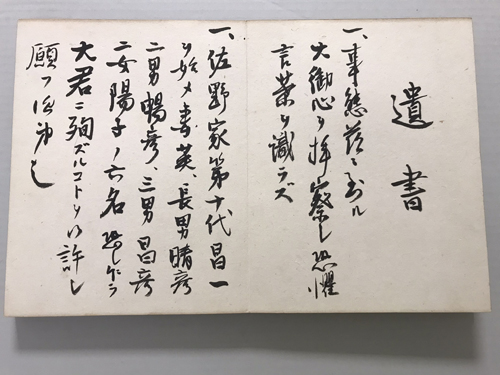 遺書
一、事態茲ニ到ル
大御心ヲ拝察シ恐懼
言葉ヲ識ラズ
一、佐野家第十代昌一
ヲ始メ妻英、長男晴彦
二男暢彦、三男昌彦
二女陽子ノ六名恐レ乍ラ
大君ニ殉ズルコトヲ許シ
願フ